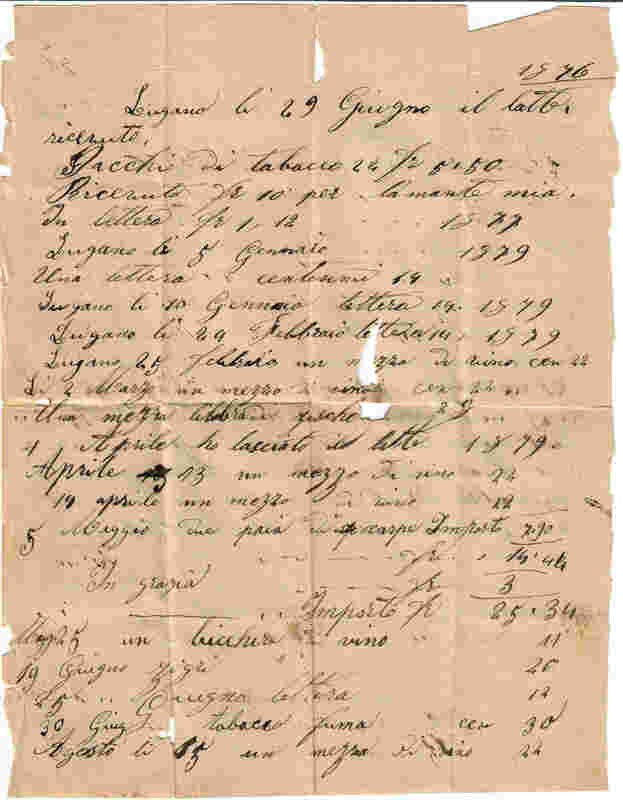 1876
Lugano li 29 Giugno il latte
ricevuto,
Pacchi di tabacco 22 fr 5.50
Ricevuto fr 10 per lamante mia.
In lettera fr 1, 12 1877
Lugano li 5 Gennaio 1879
Una lettera centesimi 14
Lugano li 10 Gennaio lettera 14. 1879
Lugano li 24 Febbraio lettera 14. 1879
Lugano 25 Febbraio un mezzo di vino cen 22
Li 2 Marzo un mezzo di vino cen 22
Una mezza
4 Aprile ho lasciato il latte 1879.
Aprile 13 un mezzo di vino 22
19 aprile un mezzo di vino 22
5 Maggio due paia di scarpe Importo 7.90
fr. 14.44
In grazia fr 3
Importo fr 25.34
un bicchiere vino 11
19 Giugno 20
Giugno lettera 12
30 Giug tabacco fuma cen 30
Agosto li 15 un mezzo di vino 22